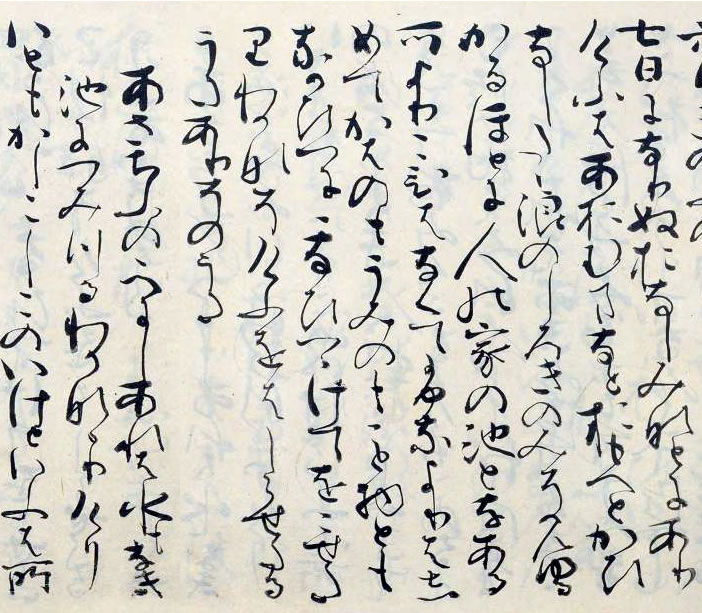 六日きのふの
七日になりぬおなしみなとにあり
けふはあをむまなとおもへとかひ
なしたゝ浪のしろきのみそみゆる
かゝるほとに人の家の池となある
所よりこひはなくてふなよりはし
めてかはのもうみのもこと物とも
なかひつにになひつゝけてをこせた
りわかなそけふをはしらせたる
うたありそのうた
あさちふのゝへにしあれは水もなき
池につみつるわかななりけり
いともかしこしこのいけといふは所